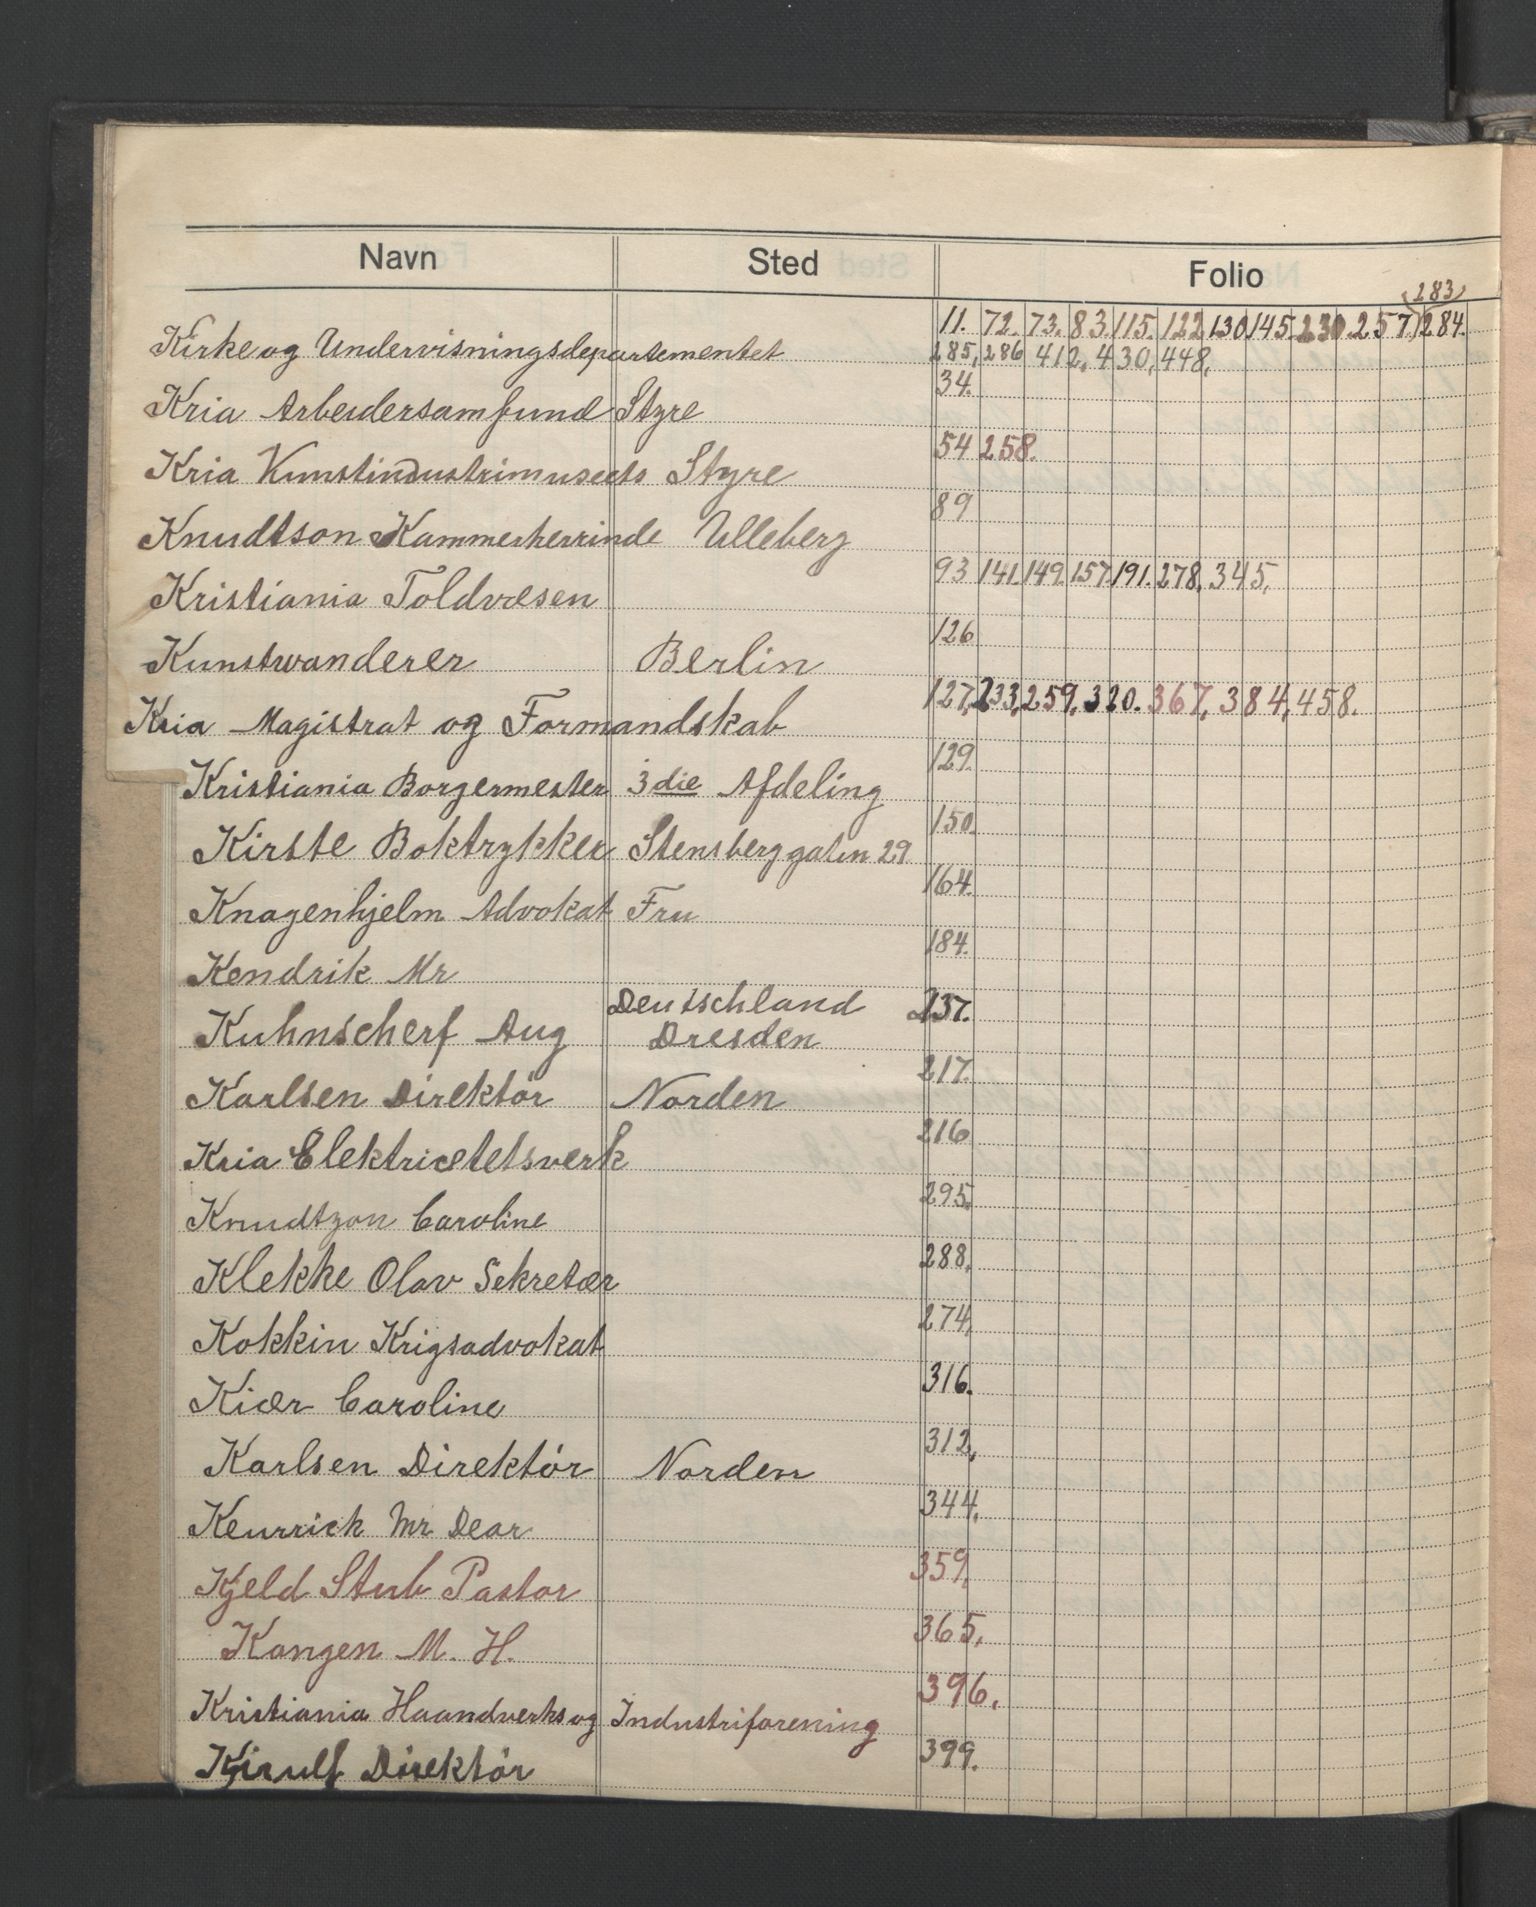 Navn Sted Folio
283
Kirke og Undervisningsdepartementet 11. 72. 73. 83. 115. 122. 130. 145. 230. 257. 284.
285, 286 412, 430, 448,
Kria Arbeidersamfund Styre 34.
Kria Kunstindustrimuseets Styre 54 258.
Knudtson Kammerherrinde Ulleberg 89
Kristiania Toldvæsen 93 141. 149. 157. 191. 278, 345,
Kunstwanderer Berlin 126
Kria Magistrat og Formandskab 127, 233, 259, 320. 367, 384, 458.
Kristiania Borgermester 3die Afdeling 129.
Kirste Boktrykker Stensberggaten 29 150.
Knagenhjelm Advokat Fru 164.
Kendrik Mr 184.
Deutschland
Kuhnscherf Aug Dresden 237.
Karlsen Direktör Norden 217.
Kria Elektricetetsverk 216
Knudtzon Caroline 295.
Klekke Olav Sekretær 288,
Kokkin Krigsadvokat 274,
Kiær Caroline 316.
Karlsen Direktör Norden 312,
Kenrrick Mr Dear 344,
Kjeld Stub Pastor 359,
Kongen M. H. 365,
Kristiania Haandverks og Industriforening 396.
Kjerulf Direktör 399.